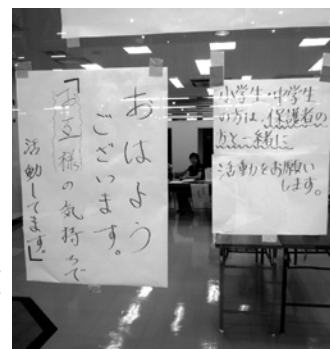 おはよう
ございます。
「お互様の気持ちで
活動してます。」
小学生・中学生
の方は、保護者の
方と一緒に
活動をお願い
します。